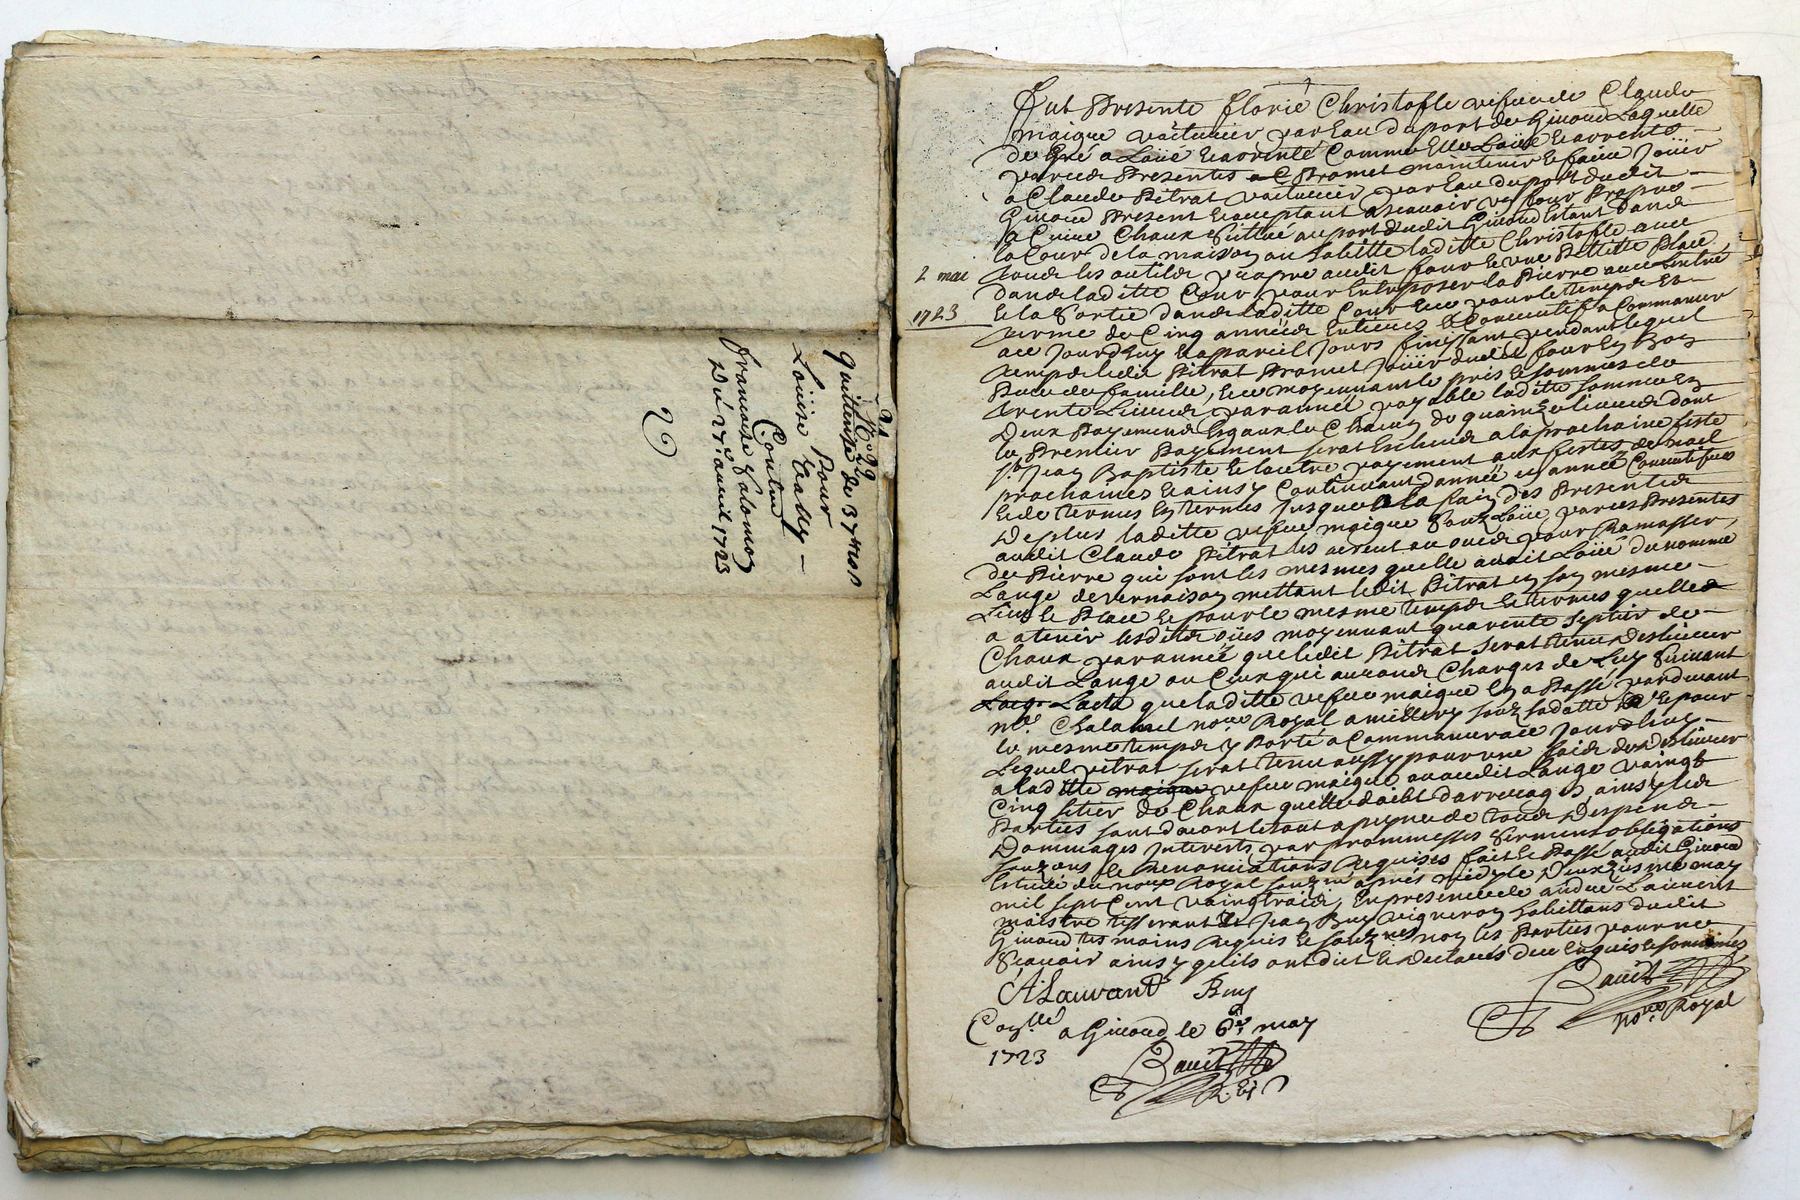 N° 22
Quittence de 37 # 10 s
Pour
Loüise
Contre
francoise Salomon
Du 27e avril 1723
2 mae
1723
Fut Presente Florie Christofle vefue de Claude
maigue voiturier par Eau du port de Giuord Laquelle
de Gré a Loüé et arrenté Comme Elle Loüe et arrente
par ces Presentes et Promet maintenir et faire Joüir
a Claude Pitrat voiturier par Eau du port dudit
Giuord Present et acceptant ascauoir un four Propre
a Cuire Chaux Scittué au port dudit Giuord Estant dans
la Cour de la maison ou habitte laditte Christofle auec
tous les outils propre audit four et vne Petitte Place
dans laditte Cour pour Entreposer la Pierre auec Lentré
et la Sortie dans laditte Cour et ce pour le temps et
terme de Cinq années Entieres et Consecutifs a Commancer
a ce Jourd'huy et a pareil Jours finissant pendant lequel
temps ledit Pitrat Promet Joüir dudit four En Bon
Pere de famille, et ce moyennant le prix et sommes de
trente Liures par année payable laditte somme En
Deux Payements Esgaux Chacun de quinze liures dont
le Premier Payement serat Escheus a la prochaine feste
St Jean Baptiste et lautre payement aux festes de noel
prochaines et ainsy Continuant d'année en année Consecutifues
et de termes En termes Jusques a la fain des Presentes
De plus laditte vefue maigue Souz Loüe par ces Presentes
audit Claude Pitrat les pour Ramasser
de Pierre qui sont les mesmes quelle auoit Loüé du nommé
Lange de vernaison mettant ledit Pitrat En son mesme
Lieu et Place et pour le mesme temps et termes quelle
a a tenir lesdittes moyennant quarente septier de
Chaux par année que ledit Pitrat serat tenu Desliurer
audit Lange ou Ceux qui auront Charges de Luy Suiuant
Lacte que laditte vefue maigue En a Passé par deuant
me Chalamel nore Royal a millery souz sa datte et pour
le mesme temps y Porté a Commancer a ce Jourdhuy
Lequel pitrat serat tenu aussy pour vne fois de Desliurer
a laditte maigue vefue maigue ou audit Lange vaingt
Cinq setier de Chaux quelle doibt darrerages, ainsy les
Parties sont dacort le tout a peyne de tous Despends
Dommages Interets par prommesses Serments obligations
souzons et Renonciations Requises fait et Passé audit Giuord
Estude du nore Royal souzné apres midy le Deuxiesme may
mil sept Cent vaingt trois, En presence de andre Laurent
maistre tisserant et Jean Buy vigneron habittans dudit
Giuord tesmoins Requis et souznes non les Parties pour ne
Scauoir ainsy quils ont dict et Declarés de ce Enquis et sommés
A Lauvant Buy
nore Royal
Conllé a Giuord le 6e may
1723